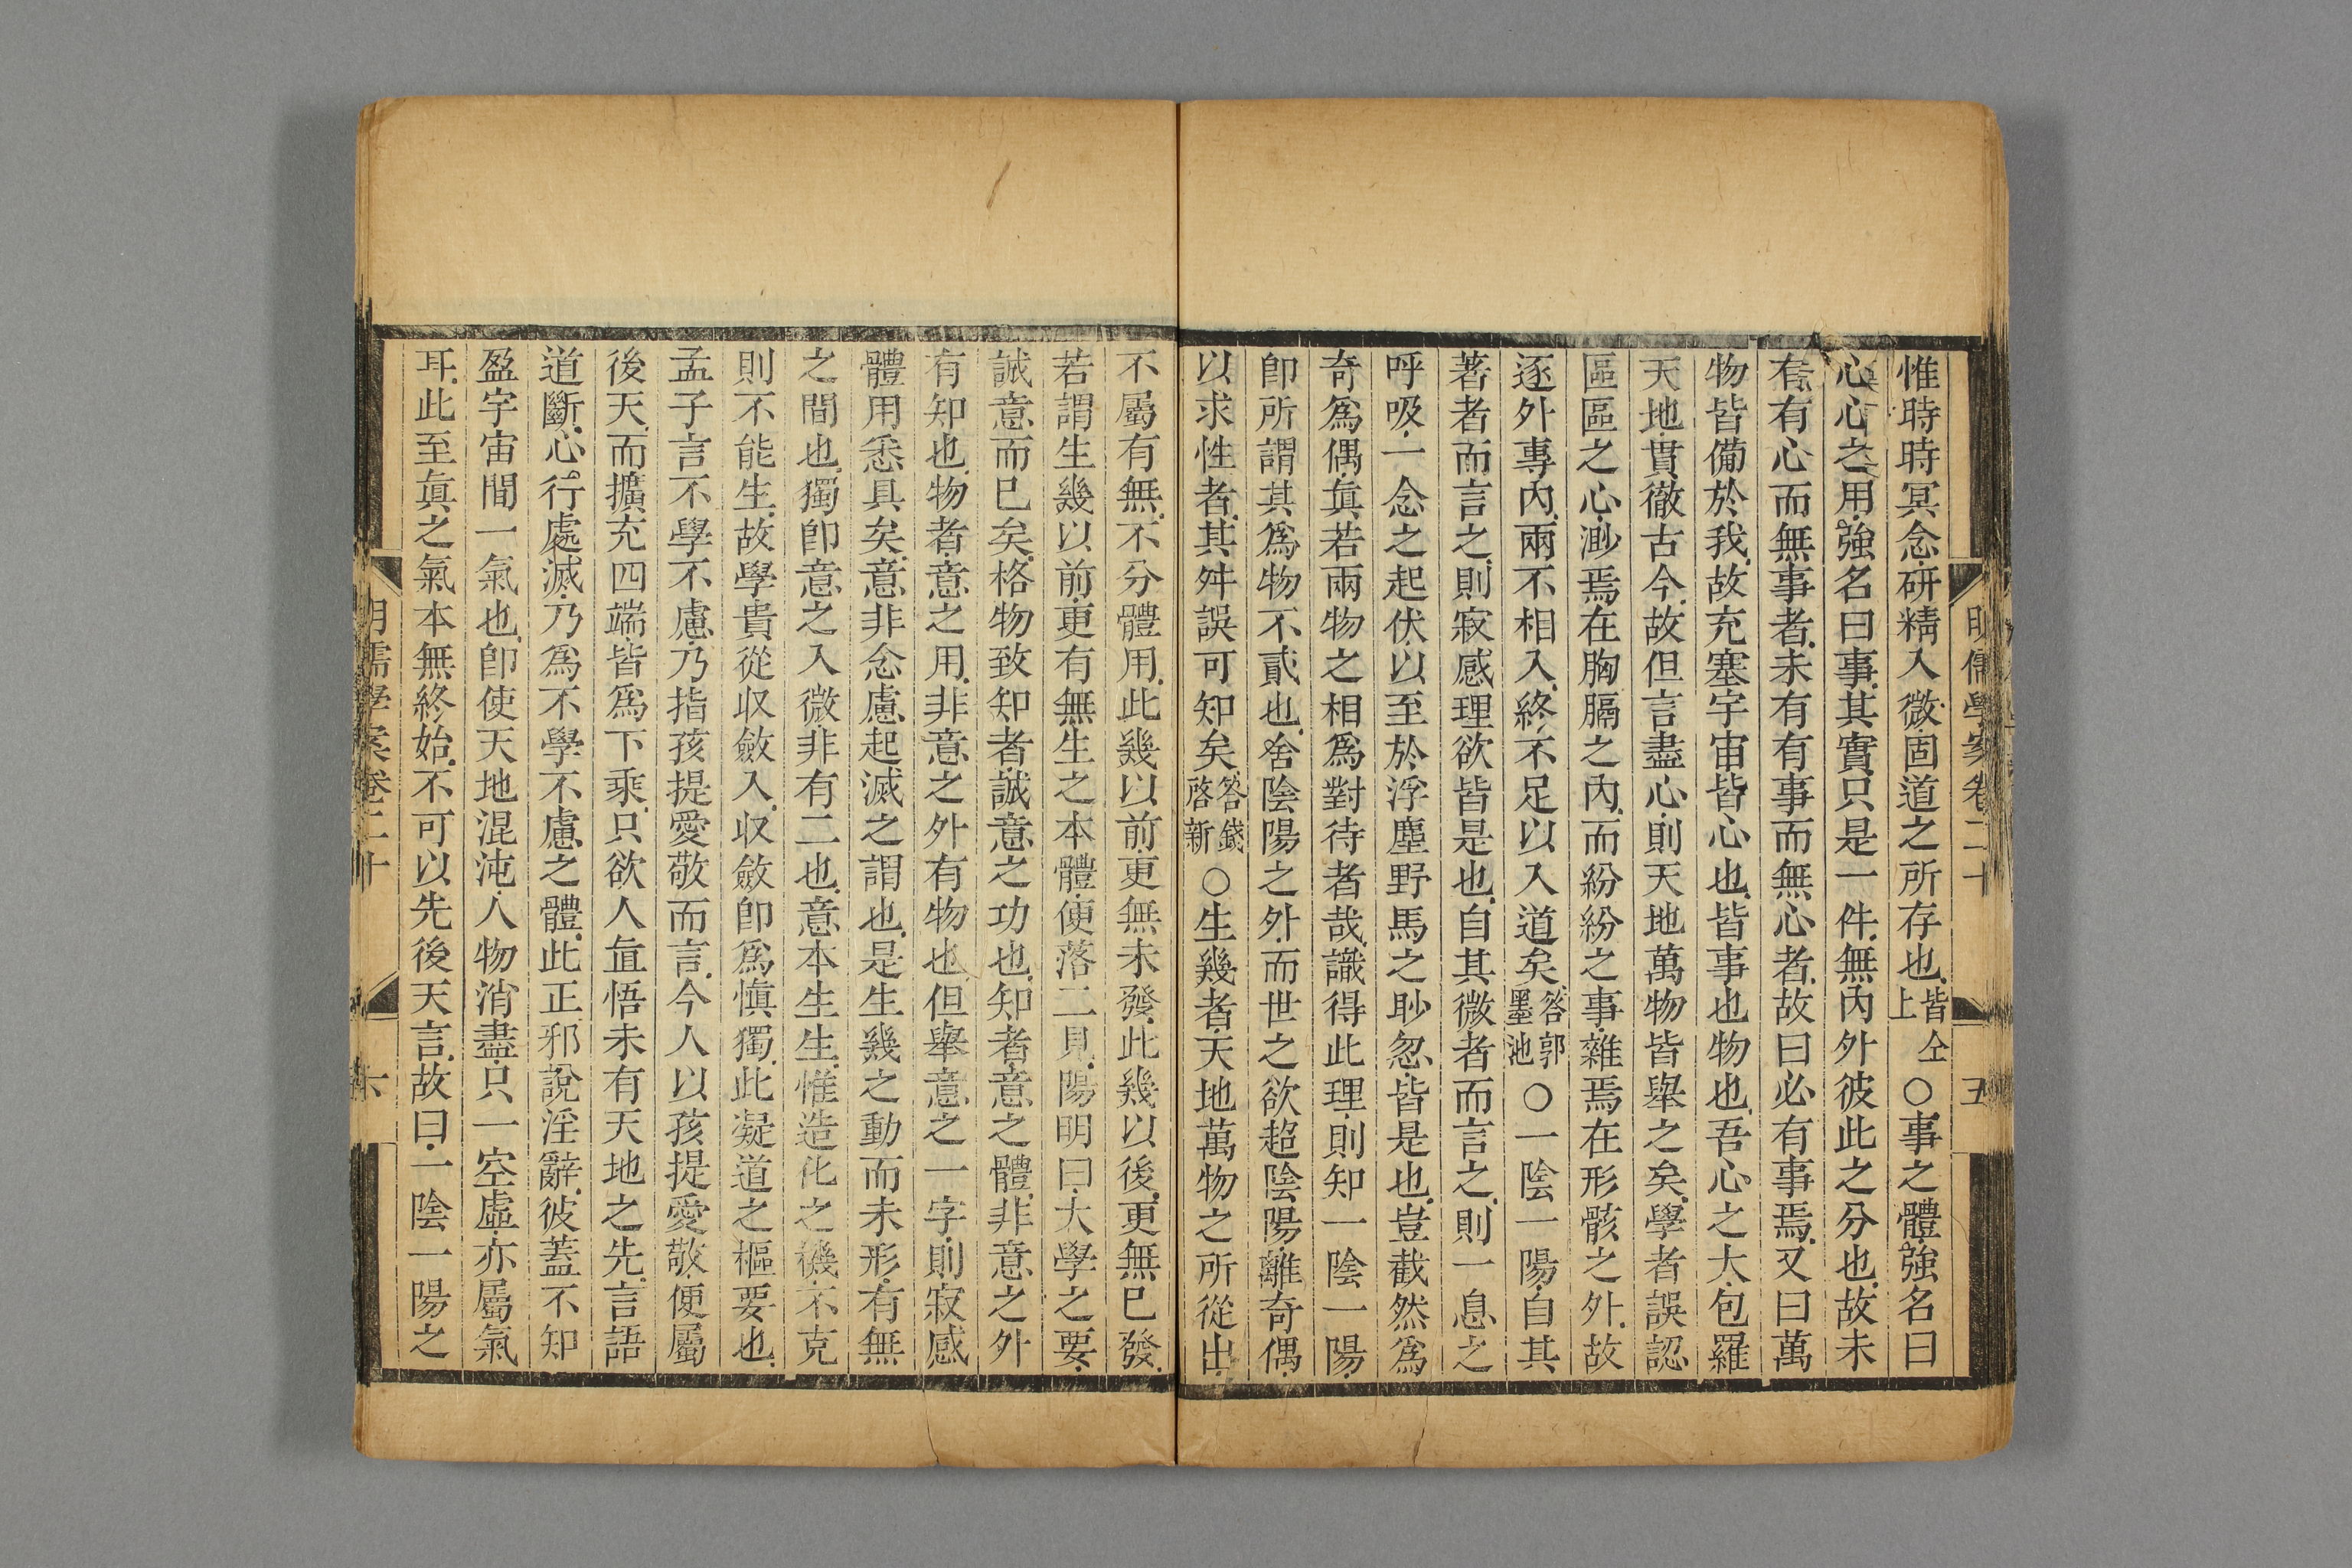 明儒學案卷二十
五
惟時時冥念研精入微固道之所存也皆仝上○事之體強名曰
心心之用強名曰事其實只是一件無內外彼此之分也故未
有有心而無事者未有有事而無心者故曰必有事焉又曰萬
物皆備於我故充塞宇宙皆心也皆事也物也吾心之大包羅
天地貫徹古今故但言盡心則天地萬物皆舉之矣學者誤認
區區之心渺焉在胸膈之內而紛紛之事雜焉在形骸之外故
逐外專內兩不相入終不足以入道矣答郭墨池○一陰一陽自其
著者而言之則寂感理欲皆是也自其微者而言之則一息之
呼吸一念之起伏以至於浮塵野馬之眇忽皆是也豈截然爲
奇爲偶眞若兩物之相爲對待者哉識得此理則知一陰一陽
卽所謂其爲物不貳也舍陰陽之外而世之欲超陰陽離奇偶
以求性者其舛誤可知矣答錢啓新○生幾者天地萬物之所從出
不屬有無不分體用此幾以前更無未發此幾以後更無已發
若謂生幾以前更有無生之本體便落二見陽明曰大學之要
誠意而已矣格物致知者誠意之功也知者意之體非意之外
有知也物者意之用非意之外有物也但舉意之一字則寂感
體用悉具矣意非念慮起滅之謂也是生幾之動而未形有無
之間也獨卽意之入微非有二也意本生生惟造化之機不克
則不能生故學貴從收斂入收斂卽爲愼獨此凝道之樞要也
孟子言不學不慮乃指孩提愛敬而言今人以孩提愛敬便屬
後天而擴充四端皆爲下乘只欲人直悟未有天地之先言語
道斷心行處滅乃爲不學不慮之體此正邪說淫辭彼蓋不知
盈宇宙間一氣也卽使天地混沌人物消盡只一空虛亦屬氣
耳此至眞之氣本無終始不可以先後天言故曰一陰一陽之
明儒學案卷二十
六